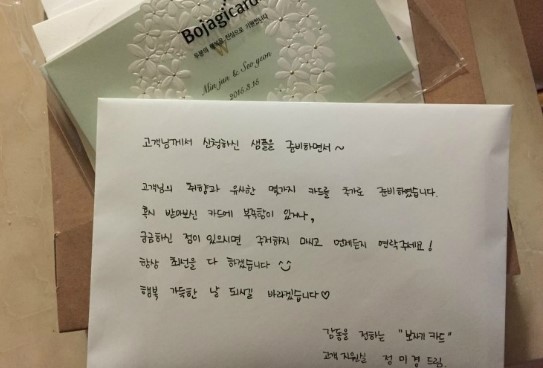 Bojagicard
두분의 행복을 진심으로 기원합니다
Min jun & Seo yeon
고객님께서 신청하신 샘플을 준비하면서 ~
고객님의 취향과 유사한 몇가지 카드를 추가로 준비하였습니다.
혹시 받아보신 카드에 부족함이 있거나,
궁금하신 점이 있으시면 주저하지 마시고 언제든지 연락주세요!
항상 최선을 다 하겠습니다
행복 가득한 날 되시길 바라겠습니다♡
감동을 전하는 "보자기 카드"
고객 지원실 정미경 드림.